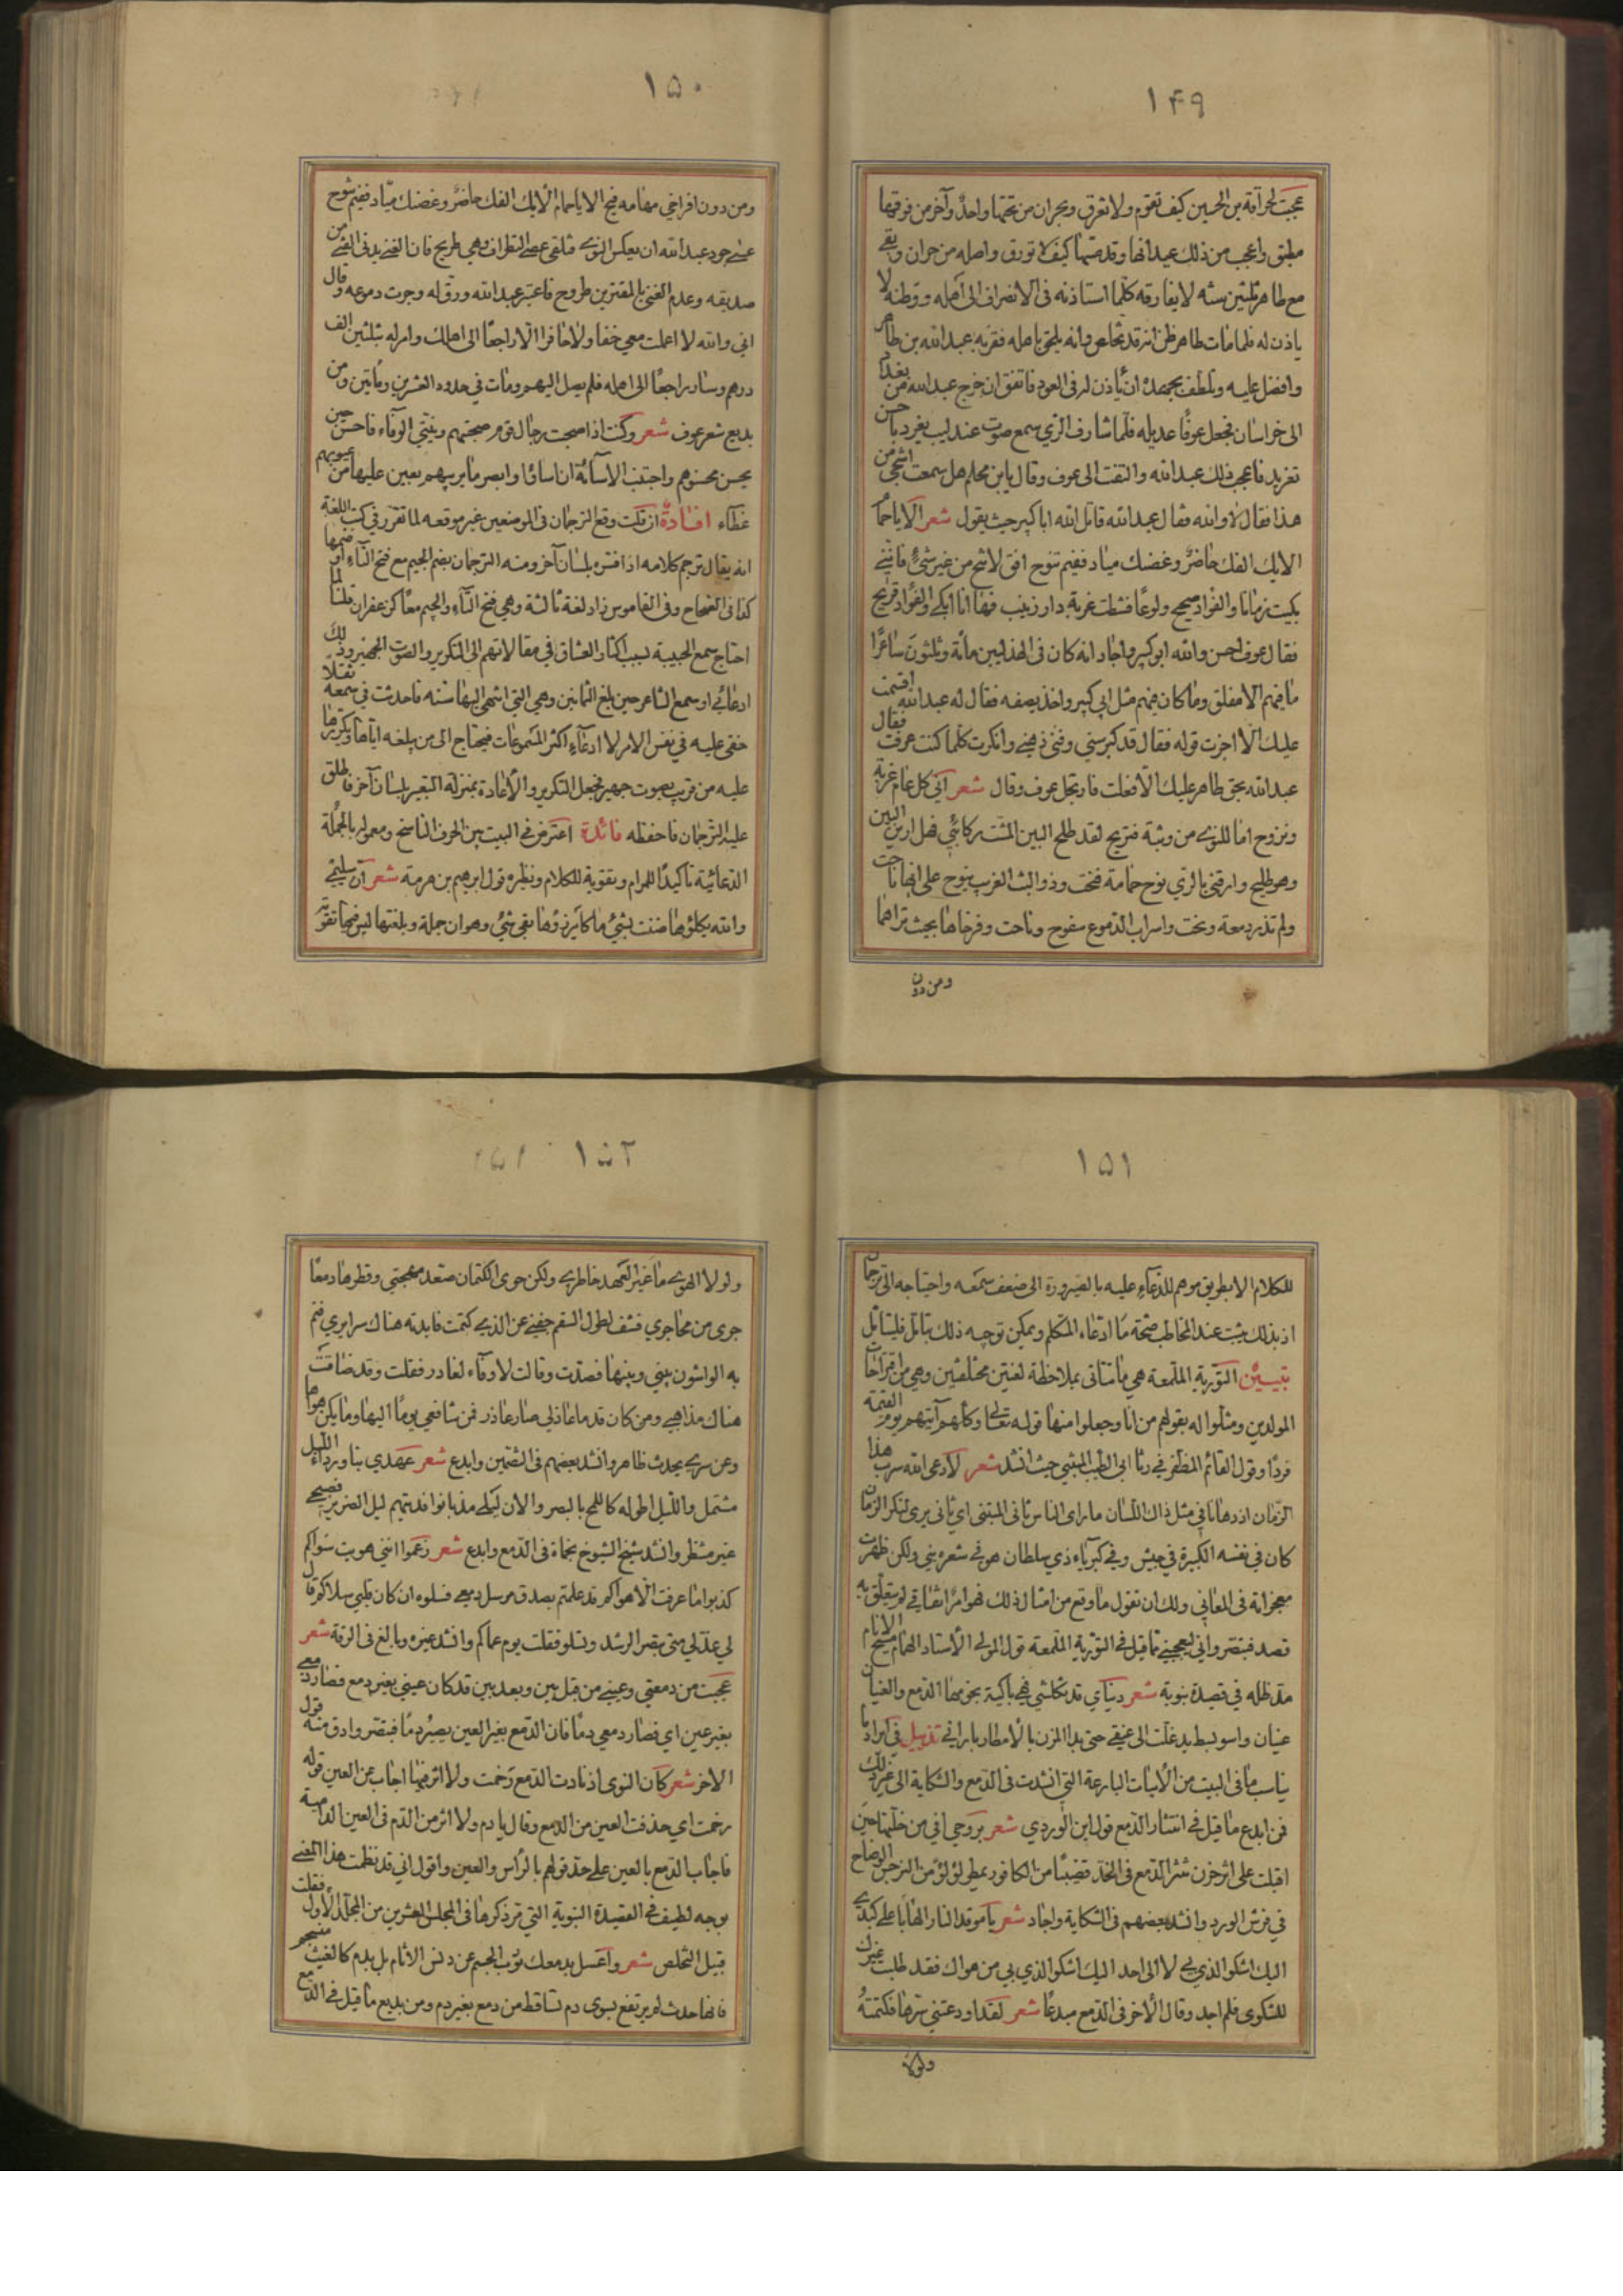 ١٤٩
عجبت لحراقة بن الحسين كيف تقوم ولا تغرق وبحران من تحتها واحد وآخر من فوقها
مطبق واعجب من ذلك عيدانها وقد مسّها كيف لا تورق واصله من حران وبقى
مع طاهر ثلثين سنه لا يفارقه كلما استاذنه فى الانصراف الى اهله ووطنه لا
ياذن له فلما مات طاهر ظن انه قد تخلص وانه يلحق باهله فقربه عبدالله بن طاهر
وافضل عليه وتلطف بجهده ان ياذن له فى العود فاتفق ان خرج عبدالله من بغداد
الى خراسان فجعل عوفًا عديله فلما شارف الري سمع صوت عندليب يغرد باحسن
تغريد فاعجب ذلك عبدالله والتفت الى عوف وقال يابن محلم هل سمعت اشجى من
هذا فقال لا والله فقال عبدالله قاتل الله اباكبير حيث يقول شعر الا ياحمام
الايك الفك حاضر وغصنك مياد ففيم تنوح افق لا تنح من غير شئ فاننى
بكيت زمانا والفواد صحيح ولوعا فشطت غربة دار زينب فها انا ابكى والفؤاد قريح
فقال عوف احسن والله ابوكبير واجاد انه كان فى الهذليين مائة وثلثون شاعرًا
ما فيهم الا مفلق وما كان فيهم مثل ابي كبير واخذ يصفه فقال له عبدالله اقسمت
عليك الا اجزت قوله فقال قد كبر سني وفنى ذهنى وانكرت كلما كنت عرفت فقال
عبدالله بحق طاهر عليك الا فعلت فارتجل عوف وقال شعر افي كل عام غربة
ونزوح اما للنوى من ونية فتريح لقد طلح البين المشت ركائبي فهل ارين البين
وهو طليح وارقني بالري نوح حمامة فنحت وذو البث الغريب ينوح على انها ناحت
ولم تذر دمعة ونحت واسراب الدموع سفوح وناحت وفرخاها بحيث تراهما
ومن دون
١٥٠
ومن دون افراخي مهامه فيح الا ياحمام الايك الفك حاضر وغصنك مياد ففيم تنوح
عسى جود عبدالله ان يعكس النوى فتلقى عصا التطواف وهي طريح فان الغنى يدنى الفتى من
صديقه وعدم الغنى بالمقترين طروح فاعتبر عبدالله ورق له وجرت دموعه وقال
اني والله لا اعملت معي خفا ولا حافرا الا راجعًا الى اهلك وامر له بثلثين الف
درهم وسار راجعًا الى اهله فلم يصل اليهم ومات في حدود العشرين ومأتين ومن
بديع شعر عوف شعر وكنت اذا صحبت رجال قوم صحبتهم ونيتي الوفاء فاحسن حين
يحسن محسنوهم واجتنب الاساءة ان اساؤا وابصر ما يريبهم بعين عليها من عيوبهم
غطاء افادة ان قلت وقع الترجمان فى الموضعين غير موقعه لما تقرر في كتب اللغة
انه يقال ترجم كلامه اذا فسره بلسان آخر ومنه الترجمان بضم الجيم مع فتح التاء او ضمها
كذا فى الصحاح وفى القاموس زاد لغة ثالثة وهي فتح التاء والجيم معًا كزعفران قلنا لما
احتاج سمع الحبيبة لسبب اكثار العشاق في مقالاتهم الى التكرير والصوت الجهير وذلك
ادعائي او سمع الشاعر حين بلغ الثمانين وهي التي انتهى اليها سنه فاحدثت في سمعه ثقلا
خفى عليه في نفس الامر لا ادعاء اكثر المسموعات فيحتاج الى من يبلغه اياها ويكررها
عليه من قريب بصوت جهير فجعل التكرير والاعادة بمنزلة التعبير بلسان آخر فاطلق
عليه الترجمان فاحفظه فائدة اعترض فى البيت بين الحرف الناسخ ومعموله بالجملة
الدعائية تاكيدًا للمرام وتقوية للكلام ونظيره قول ابرهيم بن هرمة شعر ان سليمى
والله يكلؤها ضنت بشئ ما كان يرزؤها بقي شئ وهو ان جملة وبلغتها ليس فيها تقوية
١٥١
للكلام الا بطريق موهم للدعاء عليه بالضرورة الى ضعف سمعه واحتياجه الى ترجمان
اذ بذلك يثبت عند المخاطب صحة ما ادعاه المتكلم ويمكن توجيه ذلك بتامل فليتامل
تبيين التورية الملمعة هي ما تتاتى بملاحظة لغتين مختلفتين وهي من اقتراحات
المولدين ومثلوا له بقولهم من انا وجعلوا منها قوله تعالى وكلهم آتيهم يوم القيمة
فردًا وقول القائم المظفر في رثا ابي الطيب المتنبي حيث انشد شعر لا رعى الله سرب هذا
الزمان اذ دهانا في مثل ذاك اللسان ما راى الناس ثانى المتنبى اي ثانى يرى لبكر الزمان
كان في نفسه الكبيرة في جيش وفي كبرياء ذي سلطان هو فى شعره نبي ولكن ظهرت
معجزاته فى المعاني ولك ان تقول ما وقع من امثال ذلك فهو امر اتفاقي لم يتعلق به
قصد فتبصر واني ليعجبني ما قيل في التورية الملمعة قول المولى الاستاد الهمام مسيح الانام
مد ظله في قصيدة نبوية شعر دنياي قد ثكلتني فهي باكية بخومها الدمع والعينان
عينان واسو بسط يد غلت الى عنقي حتى بدا المزن بالامطار باراني تذييل في ايراد ما
يناسب ما فى البيت من الابيات البارعة التي انشدت فى الدمع والشكاية الى غير ذلك
فمن ابدع ما قيل في انتثار الدمع قول ابن الوردي شعر بروحي افي من خلتها حين
اقبلت على اثر حزن تنثر الدمع فى الخد قضيبًا من الكافور يمطر لؤلؤ من النرجس الوضاح
في فرش الورد وانشد بعضهم فى الشكاية واجاد شعر يا موقد النار الهابا على كبدى
اليك اشكو الذي بى لا الى احد اليك اشكو الذي بي من هواك فقد طلبت غيرك
للشكوى فلم اجد وقال الآخر فى الدمع مبدعًا شعر لقد اودعتني سرها فكتمته
ولولا
١٥٢
ولولا الهوى ما غير العهد خاطري ولكن جوى الكتمان صعد مهجتي وقطرها دمعًا
جرى من محاجري فشف لطول السقم جفنى عن الذى كتمت فابدته هناك سرايري فنم
به الواشون بيني وبينها فصدت وقالت لا وفاء لغادر فقلت وقد ضاقت
هناك مذاهبى ومن كان قدما عاذلي صار عاذر فمن شافعي يومًا اليها وما يكن هواها
وعن سرى يحدث ظاهر وانشد بعضهم فى التضمين وابدع شعر عهدي بنا ورداء الليل
مشتمل والليل اطوله كاللمح بالبصر والان ليلى مذ بانوا فديتهم ليل الضرير فصبحى
غير منتظر وانشد شيخ الشيوخ بحماة فى الدمع وابدع شعر زعموا انني هويت سواكم
كذبوا ما عرفت الا هواكم قد علمتم بصدق مرسل دمعي فسلوه ان كان قلبي سلاكم قال
لي عذلي متى تبصر الرشد وتسلو فقلت يوم عماكم وانشد غيره وبالغ فى الرقة شعر
عجبت من دمعتي وعيني من قبل بين وبعد بين قد كان عيني بغير دمع فصار دمعى
بغير عين اي فصار دمعي دمًا فان الدمع بغير العين يصير دمًا فتبصر وادق منه قول
الاخر شعر كان النوى اذ نادت الدمع رخمت ولا اثر فيها اجاب عن العين قوله
رخمت اي حذفت العين من الدمع وقال يا دم ولا اثر من الدم فى العين الدامية
فاجاب الدمع بالعين على حد قولهم بالرأس والعين واقول اني قد نظمت هذا المعنى
بوجه لطيف في القصيدة النبوية التي مر ذكرها فى المجلس العشرين من المجلد الاول فقلت
قبيل التخلص شعر واغسل بدمعك ثوب الجسم عن دنس الاثام بل بدم كالغيث منسجم
فانها حدث لم يرتفع بسوى دم تساقط من دمع بغير دم ومن بديع ما قيل فى الدمع